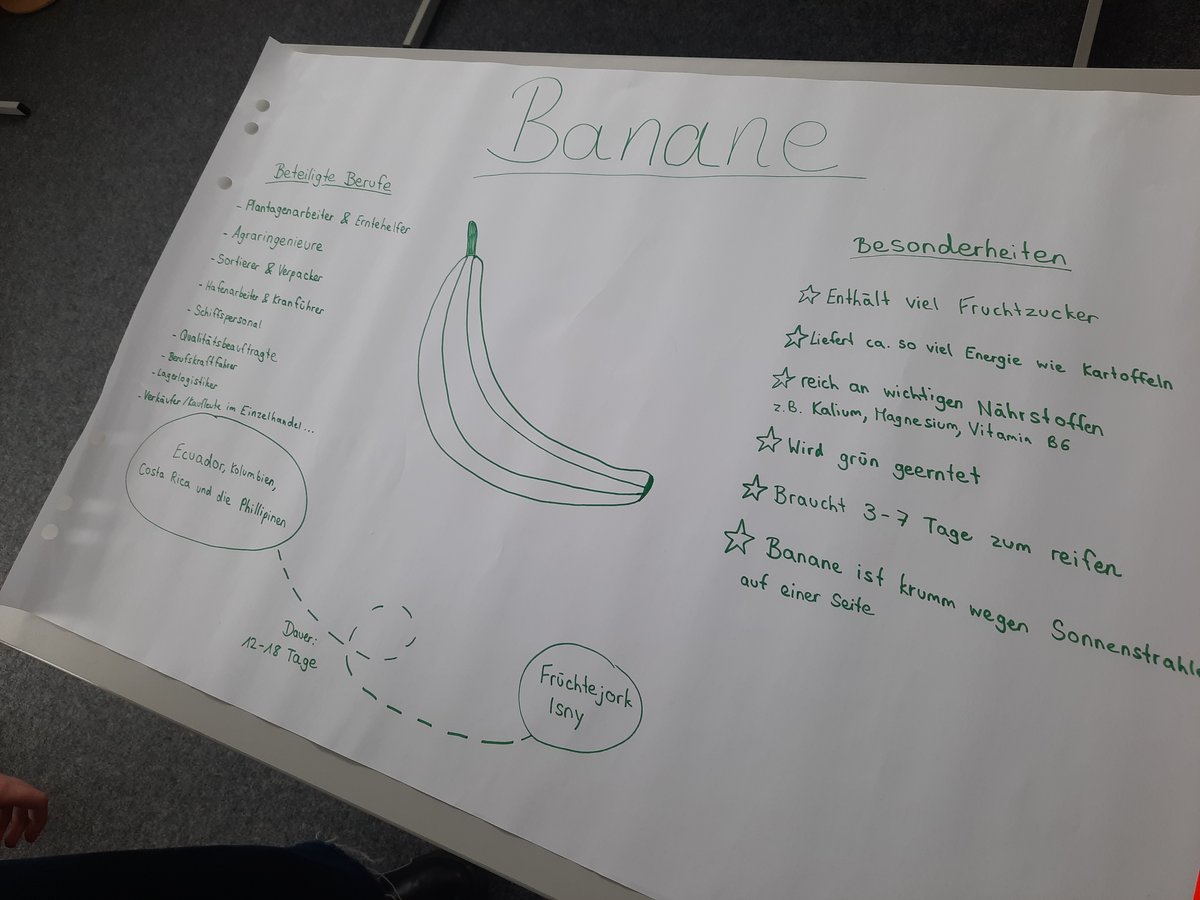 Banane
Beteiligte Berufe
- Plantagenarbeiter & Erntehelfer
- Agraringenieure
- Sortierer & Verpacker
- Hafenarbeiter & Kranführer
- Schiffspersonal
- Qualitätsbeauftragte
- Berufskraftfahrer
- Lagerlogistiker
- Verkäufer/Kaufleute im Einzelhandel...
Ecuador, Kolumbien,
Costa Rica und die Phillipinen
Dauer:
12-18 Tage
Früchtejork
Isny
Besonderheiten
☆ Enthält viel Fruchtzucker
☆ Liefert ca. so viel Energie wie Kartoffeln
☆ reich an wichtigen Nährstoffen
z.B. Kalium, Magnesium, Vitamin B6
☆ Wird grün geerntet
☆ Braucht 3-7 Tage zum reifen
☆ Banane ist krumm wegen Sonnenstrahle
auf einer Seite